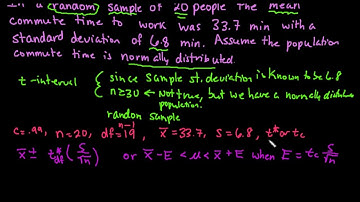 In a random sample of 20 people the mean
commute time to work was 33.7 min with a
standard deviation of 6.8 min. Assume the population
commute time is normally distributed.
t-interval { since Sample St. deviation is known to be 6.8
n≥30 ← Not true, but we have a normally distributed
population.
random sample
c=.99, n=20, df=19 n-1, x̄=33.7, s=6.8, t* or tc
x̄ ± t*df (s/√n) or x̄-E < μ < x̄+E when E = tc s/√n